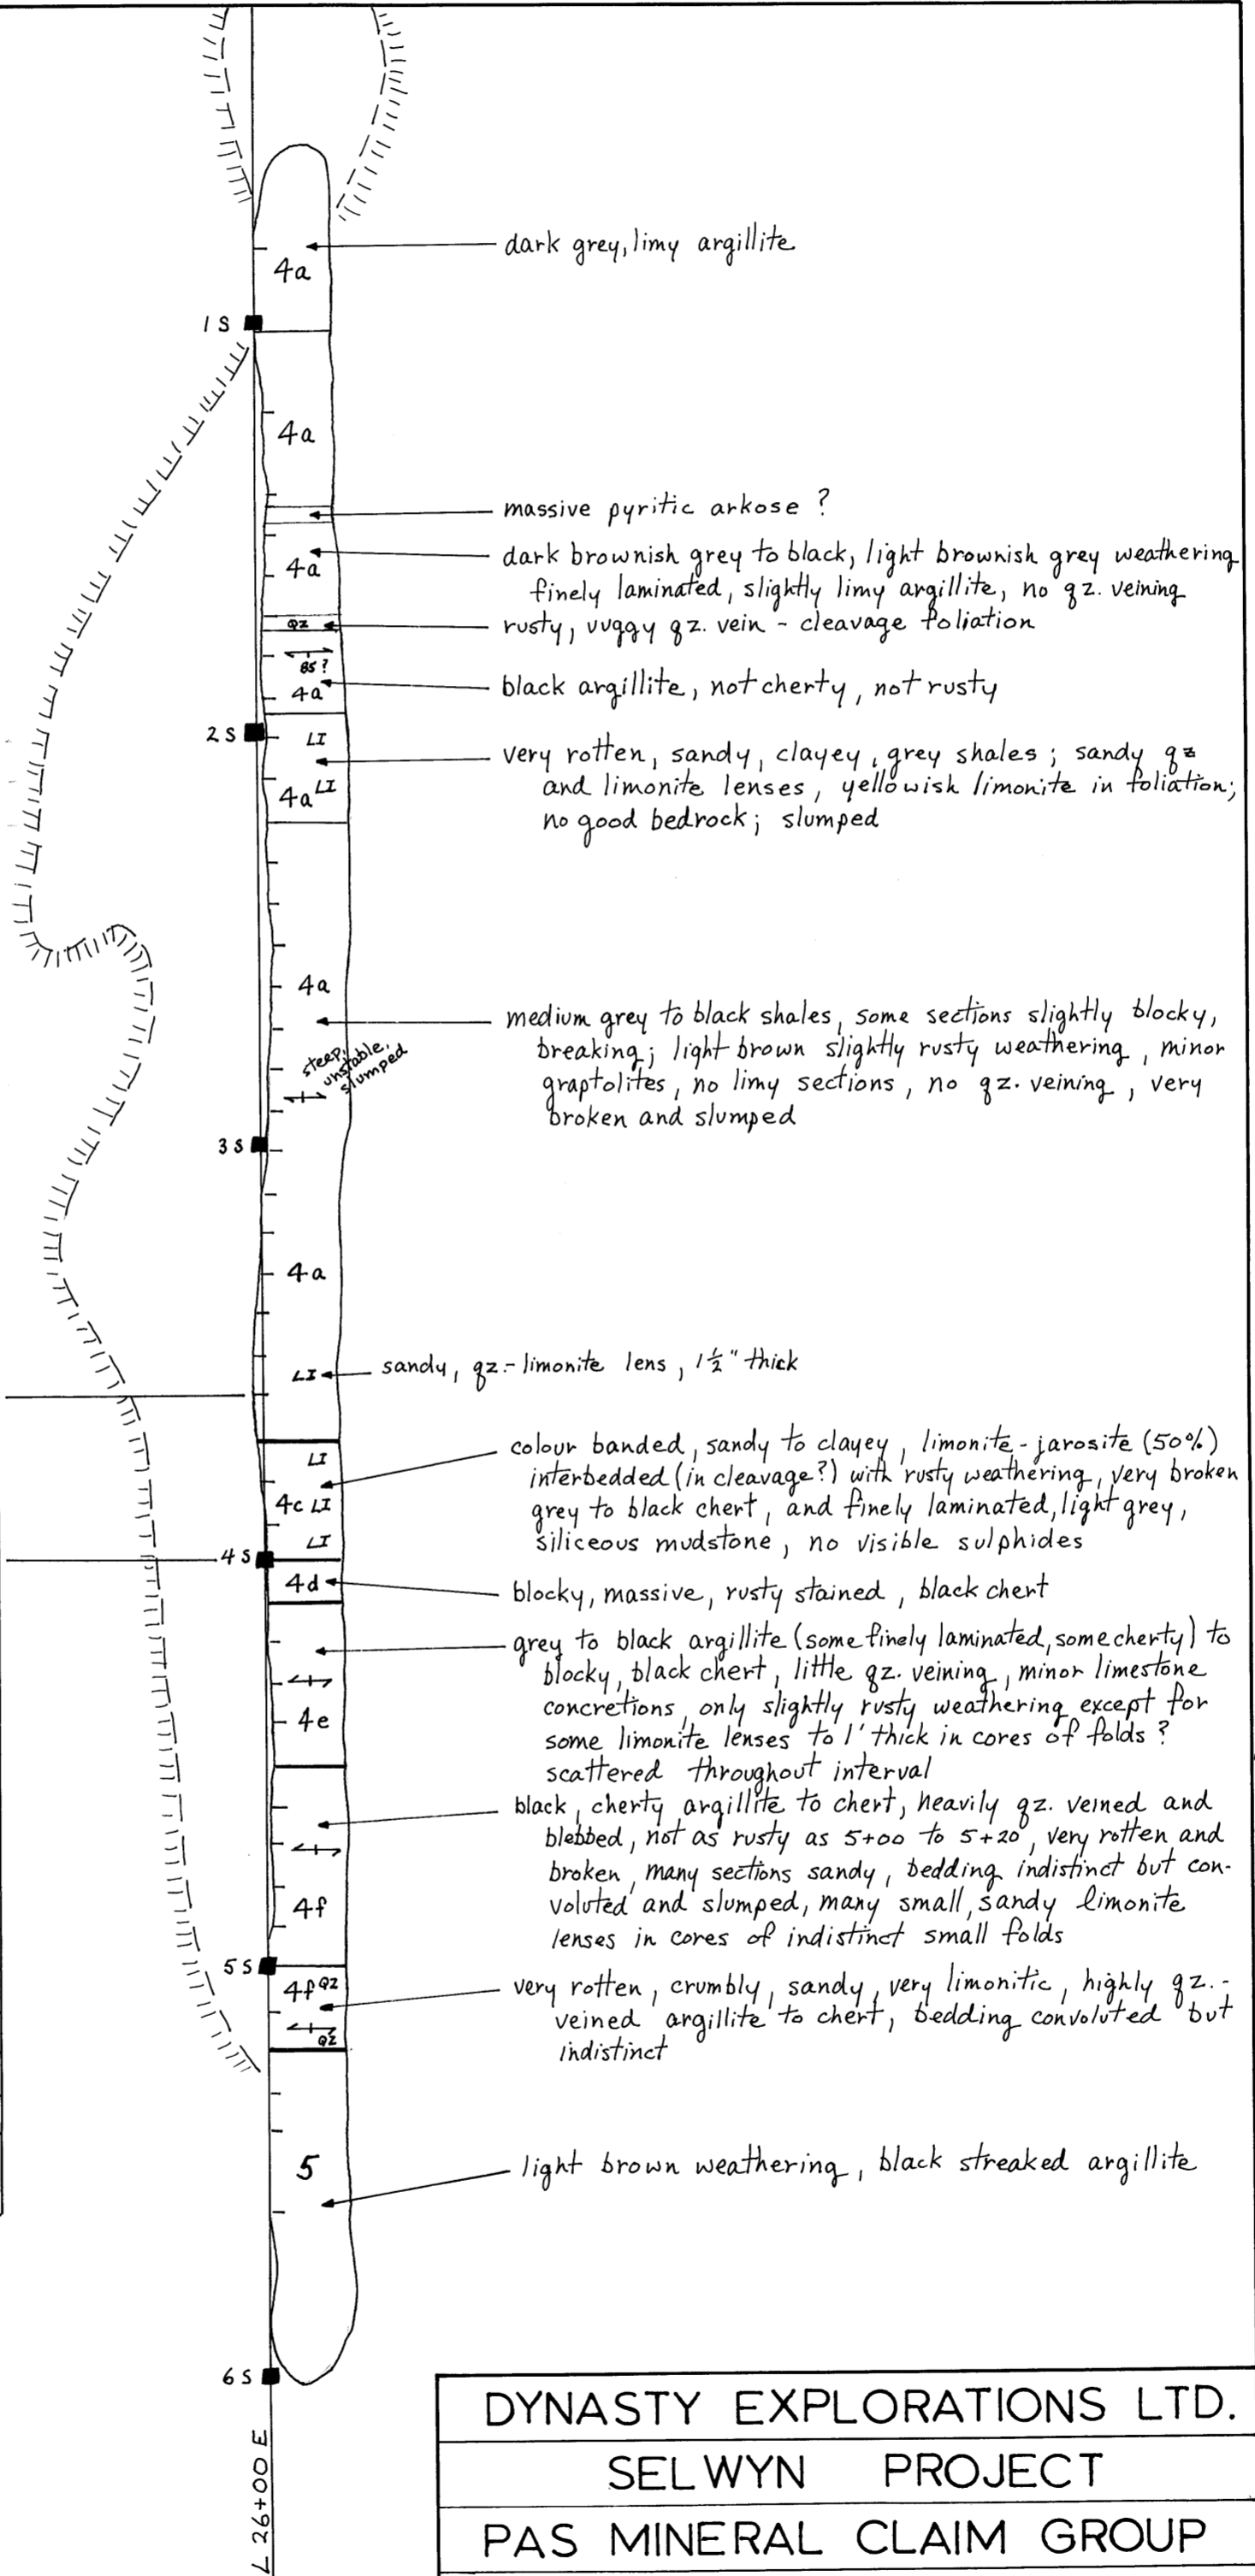 4a
dark grey, limy argillite
1 S
4a
massive pyritic arkose ?
4a
dark brownish grey to black, light brownish grey weathering
finely laminated, slightly limy argillite, no qz. veining
QZ
rusty, vuggy qz. vein - cleavage foliation
85 ?
4a
black argillite, not cherty, not rusty
2 S
LI
4a LI
very rotten, sandy, clayey, grey shales ; sandy qz
and limonite lenses, yellowish limonite in foliation;
no good bedrock; slumped
4a
medium grey to black shales, some sections slightly blocky,
breaking; light brown slightly rusty weathering, minor
graptolites, no limy sections, no qz. veining, very
broken and slumped
steep,
unstable,
slumped
3 S
4a
LI
sandy, qz.-limonite lens, 1½" thick
LI
4c LI
LI
colour banded, sandy to clayey, limonite - jarosite (50%)
interbedded (in cleavage?) with rusty weathering, very broken
grey to black chert, and finely laminated, light grey,
siliceous mudstone, no visible sulphides
4 S
4d
blocky, massive, rusty stained, black chert
4e
grey to black argillite (some finely laminated, some cherty) to
blocky, black chert, little qz. veining, minor limestone
concretions, only slightly rusty weathering except for
some limonite lenses to 1' thick in cores of folds ?
scattered throughout interval
4f
black, cherty argillite to chert, heavily qz. veined and
blebbed, not as rusty as 5+00 to 5+20, very rotten and
broken, many sections sandy, bedding indistinct but con-
voluted and slumped, many small, sandy limonite
lenses in cores of indistinct small folds
5 S
4f QZ
QZ
very rotten, crumbly, sandy, very limonitic, highly qz.-
veined argillite to chert, bedding convoluted but
indistinct
5
light brown weathering, black streaked argillite
6 S
L 26+00 E
DYNASTY EXPLORATIONS LTD.
SELWYN PROJECT
PAS MINERAL CLAIM GROUP